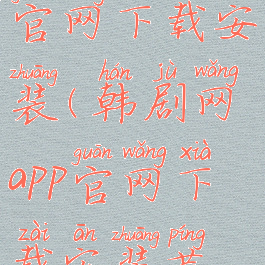 官网下载安
zhuāng hán jù wǎng
装(韩剧网
guān wǎng xià
app官网下
zài ān zhuāng píng
载安装苹